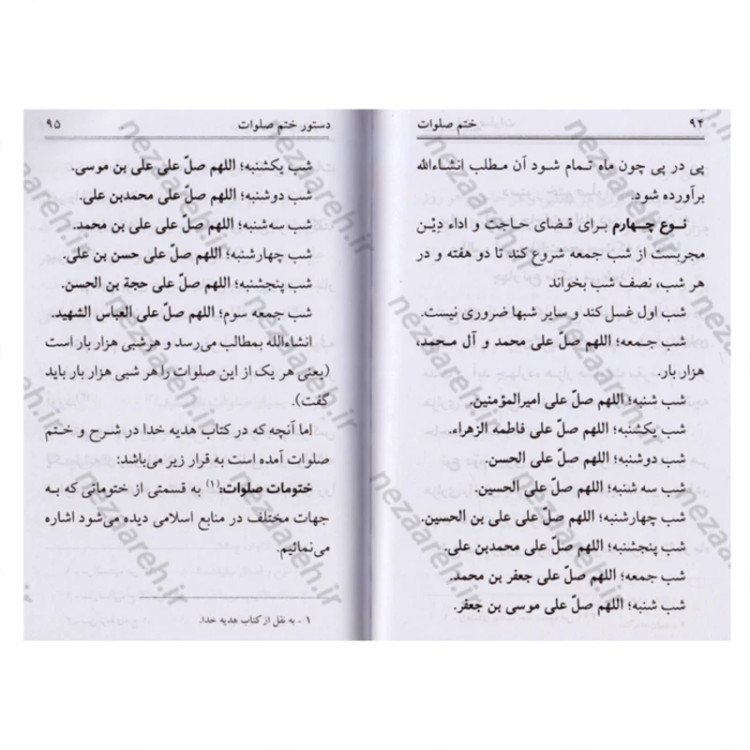 ۹۴ ختم صلوات
پی در پی چون ماه تمام شود آن مطلب انشاءالله
برآورده شود.
نوع چهارم برای قضای حاجت و اداء دِیْن
مجربست از شب جمعه شروع کند تا دو هفته و در
هر شب، نصف شب بخواند
شب اول غسل کند و سایر شبها ضروری نیست.
شب جمعه؛ اللهم صلّ علی محمد و آل محمد،
هزار بار.
شب شنبه؛ اللهم صلّ علی امیرالمؤمنین.
شب یکشنبه؛ اللهم صلّ علی فاطمه الزهراء.
شب دوشنبه؛ اللهم صلّ علی الحسن.
شب سه شنبه؛ اللهم صلّ علی الحسین.
شب چهارشنبه؛ اللهم صلّ علی علی بن الحسین.
شب پنجشنبه؛ اللهم صلّ علی محمدبن علی.
شب جمعه؛ اللهم صلّ علی جعفر بن محمد.
شب شنبه؛ اللهم صلّ علی موسی بن جعفر.
دستور ختم صلوات ۹۵
شب یکشنبه؛ اللهم صلّ علی علی بن موسی.
شب دوشنبه؛ اللهم صلّ علی محمدبن علی.
شب سه‌شنبه؛ اللهم صلّ علی علی بن محمد.
شب چهارشنبه؛ اللهم صلّ علی حسن بن علی.
شب پنجشنبه؛ اللهم صلّ علی حجة بن الحسن.
شب جمعه سوم؛ اللهم صلّ علی العباس الشهید.
انشاءالله بمطالب می‌رسد و هرشبی هزار بار است
(یعنی هر یک از این صلوات را هر شبی هزار بار باید
گفت).
اما آنچه که در کتاب هدیه خدا در شرح و ختم
صلوات آمده است به قرار زیر می‌باشد:
ختومات صلوات:(۱) به قسمتی از ختوماتی که به
جهات مختلف در منابع اسلامی دیده می‌شود اشاره
می‌نمائیم.
۱ - به نقل از کتاب هدیه خدا.
nezaareh.ir